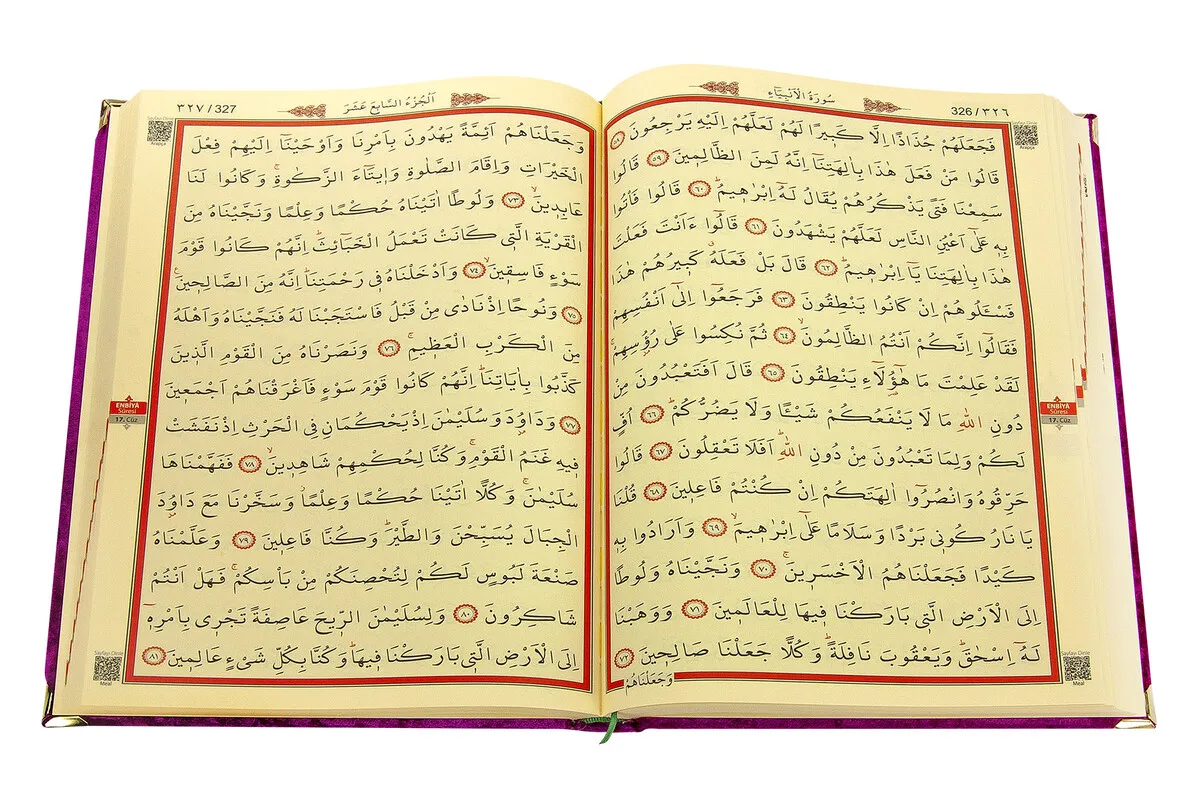 326/٣٢٦
سُورَةُ الْاَنْبِيَٓاءِ
فَجَعَلَهُمْ جُذَاذًا اِلَّا كَب۪يرًا لَهُمْ لَعَلَّهُمْ اِلَيْهِ يَرْجِعُونَ ﴿٥٨﴾
قَالُوا مَنْ فَعَلَ هٰذَا بِاٰلِهَتِنَٓا اِنَّهُ لَمِنَ الظَّالِم۪ينَ ﴿٥٩﴾ قَالُوا
سَمِعْنَا فَتًى يَذْكُرُهُمْ يُقَالُ لَهُٓ اِبْرٰه۪يمُۜ ﴿٦٠﴾ قَالُوا فَأْتُوا
بِه۪ عَلٰٓى اَعْيُنِ النَّاسِ لَعَلَّهُمْ يَشْهَدُونَ ﴿٦١﴾ قَالُٓوا ءَاَنْتَ فَعَلْتَ
هٰذَا بِاٰلِهَتِنَا يَٓا اِبْرٰه۪يمُۜ ﴿٦٢﴾ قَالَ بَلْ فَعَلَهُۗ كَب۪يرُهُمْ هٰذَا
فَسْـَٔلُوهُمْ اِنْ كَانُوا يَنْطِقُونَ ﴿٦٣﴾ فَرَجَعُٓوا اِلٰٓى اَنْفُسِهِمْ
فَقَالُٓوا اِنَّكُمْ اَنْتُمُ الظَّالِمُونَۙ ﴿٦٤﴾ ثُمَّ نُكِسُوا عَلٰى رُؤُ۫سِهِمْۚ
لَقَدْ عَلِمْتَ مَا هٰٓؤُ۬لَٓاءِ يَنْطِقُونَ ﴿٦٥﴾ قَالَ اَفَتَعْبُدُونَ مِنْ
دُونِ اللّٰهِ مَا لَا يَنْفَعُكُمْ شَيْـًٔا وَلَا يَضُرُّكُمْۜ ﴿٦٦﴾ اُفٍّ
لَكُمْ وَلِمَا تَعْبُدُونَ مِنْ دُونِ اللّٰهِۜ اَفَلَا تَعْقِلُونَ ﴿٦٧﴾ قَالُوا
حَرِّقُوهُ وَانْصُرُٓوا اٰلِهَتَكُمْ اِنْ كُنْتُمْ فَاعِل۪ينَ ﴿٦٨﴾ قُلْنَا
يَا نَارُ كُون۪ي بَرْدًا وَسَلَامًا عَلٰٓى اِبْرٰه۪يمَۙ ﴿٦٩﴾ وَاَرَادُوا بِه۪
كَيْدًا فَجَعَلْنَاهُمُ الْاَخْسَر۪ينَۚ ﴿٧٠﴾ وَنَجَّيْنَاهُ وَلُوطًا
اِلَى الْاَرْضِ الَّت۪ي بَارَكْنَا ف۪يهَا لِلْعَالَم۪ينَ ﴿٧١﴾ وَوَهَبْنَا
لَهُٓ اِسْحٰقَۜ وَيَعْقُوبَ نَافِلَةًۜ وَكُلًّا جَعَلْنَا صَالِح۪ينَ ﴿٧٢﴾
وَجَعَلْنَاهُمْ
ENBİYÂ
Sûresi
17. Cüz
Sayfayı Dinle
Arapça
Sayfayı Dinle
Meal
٣٢٧/327
اَلْجُزْءُ السَّابِعَ عَشَرَ
وَجَعَلْنَاهُمْ اَئِمَّةً يَهْدُونَ بِاَمْرِنَا وَاَوْحَيْنَٓا اِلَيْهِمْ فِعْلَ
الْخَيْرَاتِ وَاِقَامَ الصَّلٰوةِ وَا۪يتَٓاءَ الزَّكٰوةِۚ وَكَانُوا لَنَا
عَابِد۪ينَۙ ﴿٧٣﴾ وَلُوطًا اٰتَيْنَاهُ حُكْمًا وَعِلْمًا وَنَجَّيْنَاهُ مِنَ
الْقَرْيَةِ الَّت۪ي كَانَتْ تَعْمَلُ الْخَبَٓائِثَۜ اِنَّهُمْ كَانُوا قَوْمَ
سَوْءٍ فَاسِق۪ينَۙ ﴿٧٤﴾ وَاَدْخَلْنَاهُ ف۪ي رَحْمَتِنَاۜ اِنَّهُ مِنَ الصَّالِح۪ينَ۟
﴿٧٥﴾ وَنُوحًا اِذْ نَادٰى مِنْ قَبْلُ فَاسْتَجَبْنَا لَهُ فَنَجَّيْنَاهُ وَاَهْلَهُ
مِنَ الْكَرْبِ الْعَظ۪يمِۚ ﴿٧٦﴾ وَنَصَرْنَاهُ مِنَ الْقَوْمِ الَّذ۪ينَ
كَذَّبُوا بِاٰيَاتِنَاۜ اِنَّهُمْ كَانُوا قَوْمَ سَوْءٍ فَاَغْرَقْنَاهُمْ اَجْمَع۪ينَ
﴿٧٧﴾ وَدَاوُ۫دَ وَسُلَيْمٰنَ اِذْ يَحْكُمَانِ فِي الْحَرْثِ اِذْ نَفَشَتْ
ف۪يهِ غَنَمُ الْقَوْمِۚ وَكُنَّا لِحُكْمِهِمْ شَاهِد۪ينَۙ ﴿٧٨﴾ فَفَهَّمْنَاهَا
سُلَيْمٰنَۚ وَكُلًّا اٰتَيْنَا حُكْمًا وَعِلْمًاۘ وَسَخَّرْنَا مَعَ دَاوُ۫دَ
الْجِبَالَ يُسَبِّحْنَ وَالطَّيْرَۜ وَكُنَّا فَاعِل۪ينَ ﴿٧٩﴾ وَعَلَّمْنَاهُ
صَنْعَةَ لَبُوسٍ لَكُمْ لِتُحْصِنَكُمْ مِنْ بَأْسِكُمْۚ فَهَلْ اَنْتُمْ
شَاكِرُونَ ﴿٨٠﴾ وَلِسُلَيْمٰنَ الرّ۪يحَ عَاصِفَةً تَجْر۪ي بِاَمْرِه۪ٓ
اِلَى الْاَرْضِ الَّت۪ي بَارَكْنَا ف۪يهَاۜ وَكُنَّا بِكُلِّ شَيْءٍ عَالِم۪ينَ ﴿٨١﴾
ENBİYÂ
Sûresi
17. Cüz
Sayfayı Dinle
Arapça
Sayfayı Dinle
Meal